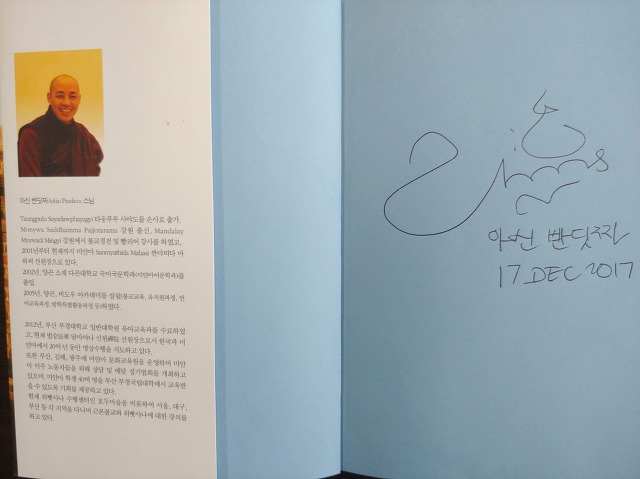 아신 빤딧짜Ashin Pandicca 스님
Taungpulu Sayadawphayagyi 타웅푸루 사야도를 은사로 출가.
Monywa Saddhamma Pujjotarama 강원 출신, Mandalay
Myawadi Mingyi 강원에서 불교경전 및 빨리어 강사를 하였고,
2001년부터 현재까지 미얀마 Sammpathida Mahasi 싼마띠다 마
하씨 선원장으로 있다.
2002년, 양곤 소재 다곤대학교 국어국문학과(미얀마어문학과)를
졸업.
2005년, 양곤, 버도우 아카데미를 설립(불교교육, 유치원과정, 언
어교육과정, 방학특별활동과정 등)하였다.
2012년, 부산 부경대학교 일반대학원 유아교육과를 수료하였
고, 현재 법승法乘 담마야나 선원禪院 선원장으로서 한국과 미
얀마에서 20여 년 동안 명상수행을 지도하고 있다.
또한 부산, 김해, 광주에 미얀마 문화교육원을 운영하며 미얀
마 이주 노동자들을 위해 상담 및 매달 정기법회를 개최하고
있으며, 미얀마 학생 40여 명을 부산 부경국립대학에서 교육받
을 수 있도록 기회를 제공하고 있다.
현재 위빳사나 수행센터인 호두마을을 비롯하여 서울, 대구,
부산 등 각 지역을 다니며 근본불교와 위빳사나에 대한 강의를
하고 있다.
아신 빤딧짜
17 DEC 2017